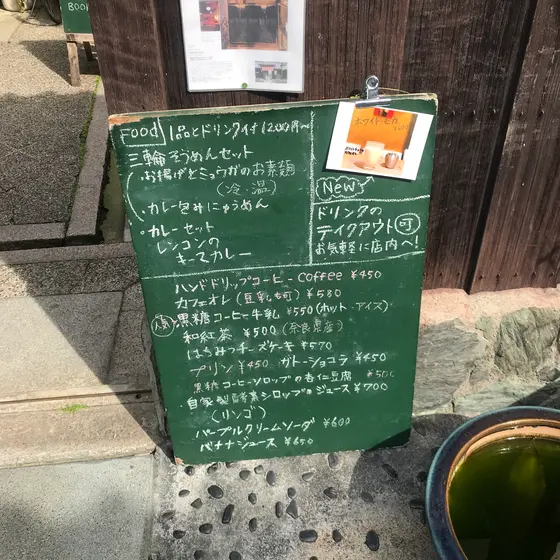 BOOK
Food 1品とドリンク付 1200円〜
三輪そうめんセット
お揚げとミョウガのお素麺
(冷・温)
カレー包みにゅうめん
・カレーセット
レンコンの
キーマカレー
ホワイトモカ
New
ドリンクの
テイクアウト可
お気軽に店内へ!
ハンドドリップコーヒー coffee ¥450
カフェオレ (豆乳も可) ¥580
黒糖コーヒー牛乳 ¥550 (ホット・アイス)
和紅茶 ¥500 (奈良県産)
はちみつチーズケーキ ¥570
プリン ¥450 ガトーショコラ ¥450
黒糖コーヒーシロップの杏仁豆腐 ¥500
・自家製酵素シロップのジュース ¥700
(リンゴ)
パープルクリームソーダ ¥600
バナナジュース ¥650